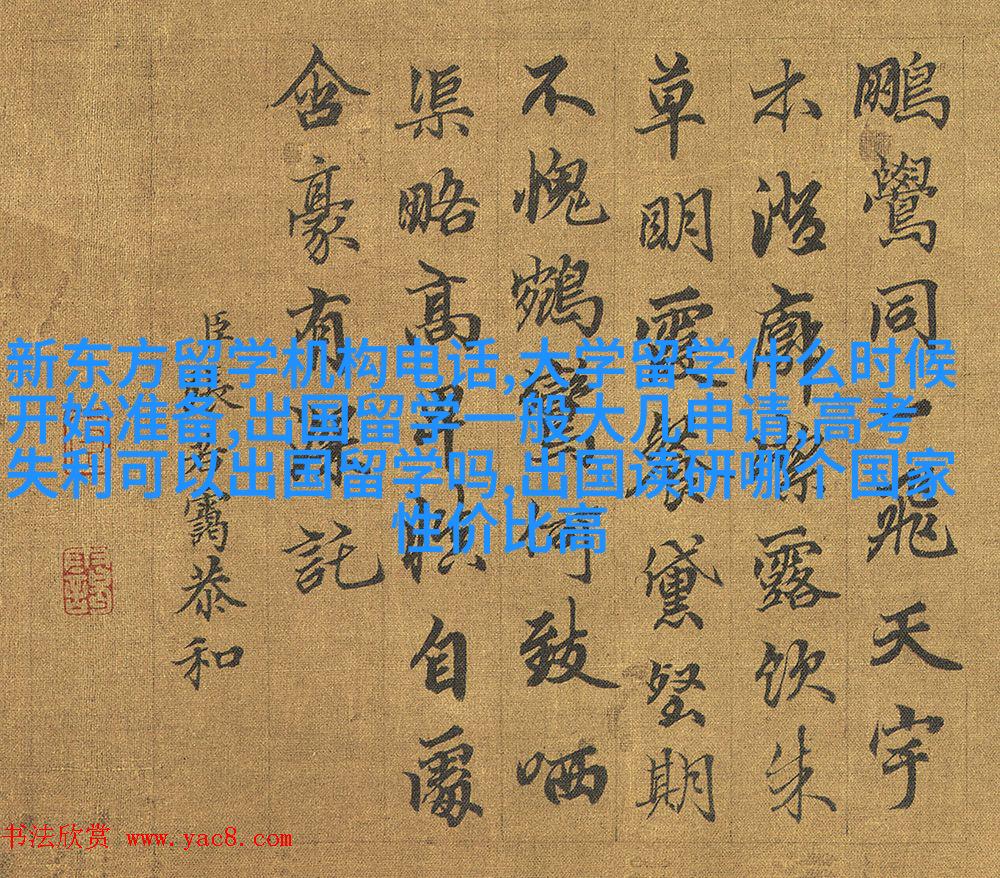 新东方留学机构电话,大学留学什么时候
开始准备,出国留学一般大几申请,高考
失利可以出国留学吗,出国读研哪个国家
性价比高
鵬鷽同飛天宇
木澄露飲朱
草明霞餐黛壑期
不愧鶴致哂
渠略高自
含豪有託
臣靄恭和
书法欣赏 www.yac8.com